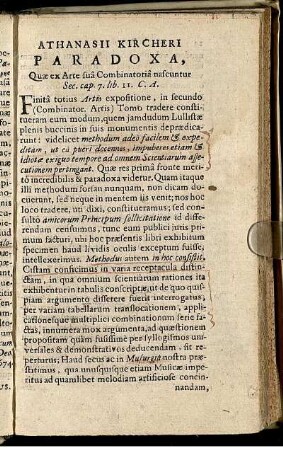 ATHANASII KIRCHERI
PARADOXA,
Quæ ex Arte suâ Combinatoriâ nascuntur
Sec. cap. 7. lib. 11. C. A.
Finitâ totius Artis expositione, in secundo
(Combinatoc. Artis) Tomo tradere consti-
tueram eum modum, quem jamdudum Lullistæ
plenis buccinis in suis monumentis deprædica-
runt: videlicet methodum adeo facilem & expe-
ditam, ut eâ pueri decennes, impuberes etiam &
idiotæ exiguo tempore ad omnem Scientiarum asse-
cutionem pertingant. Quæ res primâ fronte meri-
tò incredibilis & paradoxa videtur. Quam itaque
illi methodum forsan nunquam, non dicam do-
cuerunt, sed neque in mentem iis venit; nos hoc
loco tradere, uti dixi, constitueramus; sed con-
sultò amicorum Principum sollicitatione id diffe-
rendum censuimus, tunc eum publici juris pri-
mum facturi, ubi hoc præsenti libri exhibitum
specimen haud lividis oculis exceptum fuisse,
intellexerimus. Methodus autem in hoc consistit.
Cistam conficimus in varia receptacula distin-
ctam, in qua omnium scientiarum rationes ita
exhibentur in tabulis conscriptæ, ut de quo quis-
piam argumento disserere fuerit interrogatus;
per variam tabellarum translocationem, appli-
cationesque multiplici combinationum serie fa-
ctas, innumera mox argumenta, ad quæstionem
propositam quàm fusissime per syllogismos uni-
versales & demonstrativos deducendam, sit re-
perturus; Haud secus ac in Musurgia nostra præ-
stitimus, qua unusquisque etiam Musicæ impe-
ritus ad quamlibet melodiam artificiose concin-
nandam,